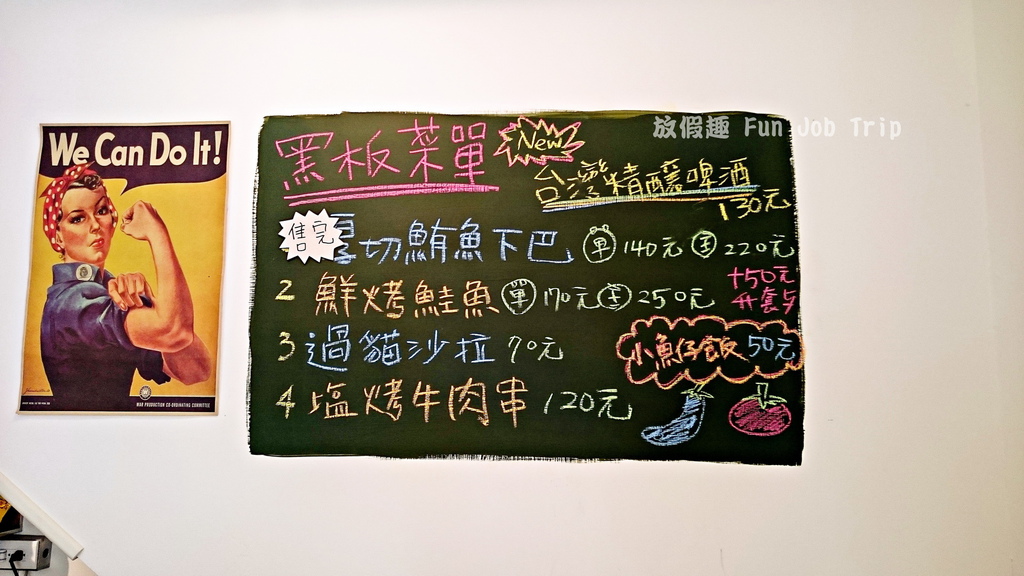 We Can Do It!
WAR PRODUCTION CO-ORDINATING COMMITTEE
放假趣 Fun Job Trip
黑板菜單
New
台灣精釀啤酒
130元
售完
厚切鮪魚下巴 單 140元 套 220元
2 鮮烤鮭魚 單 170元 套 250元
+50元
升套餐
3 過貓沙拉 70元
小魚仔飯 50元
4 塩烤牛肉串 120元